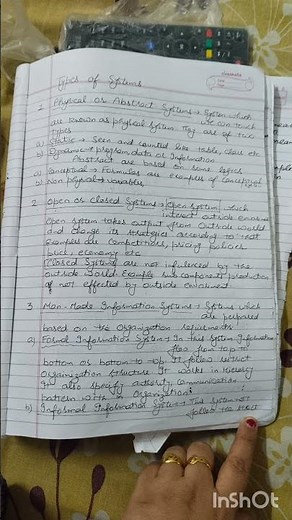 Types of Systems
1. Physical or Abstract Systems → System which
we can touch
are known as physical system. They are of two
types
a) Static → Seen and counted like table, chair etc
b) Dynamic → program, data or Information
Abstract are based on some logics
a) Conceptual → Formulas are Examples of conceptual
b) Non physical → variables
2. Open or Closed Systems → Open system which
interact outside
Open system takes output from outside world
and change its strategies according to that
Examples are Competitions, pricing policies
etc
Closed Systems are not influenced by the
outside world. Example sub component production
not effected by outside
3. Man-Made Information Systems → Systems which
are prepared
based on the organization
a) Formal Information System → In this system Information
flow from top to
bottom or bottom to top. It follow strict
Organization structure It works in
It also specify authority, communication
pattern with in organization
b) Informal Information System → This system not
follow the strict
InShOt